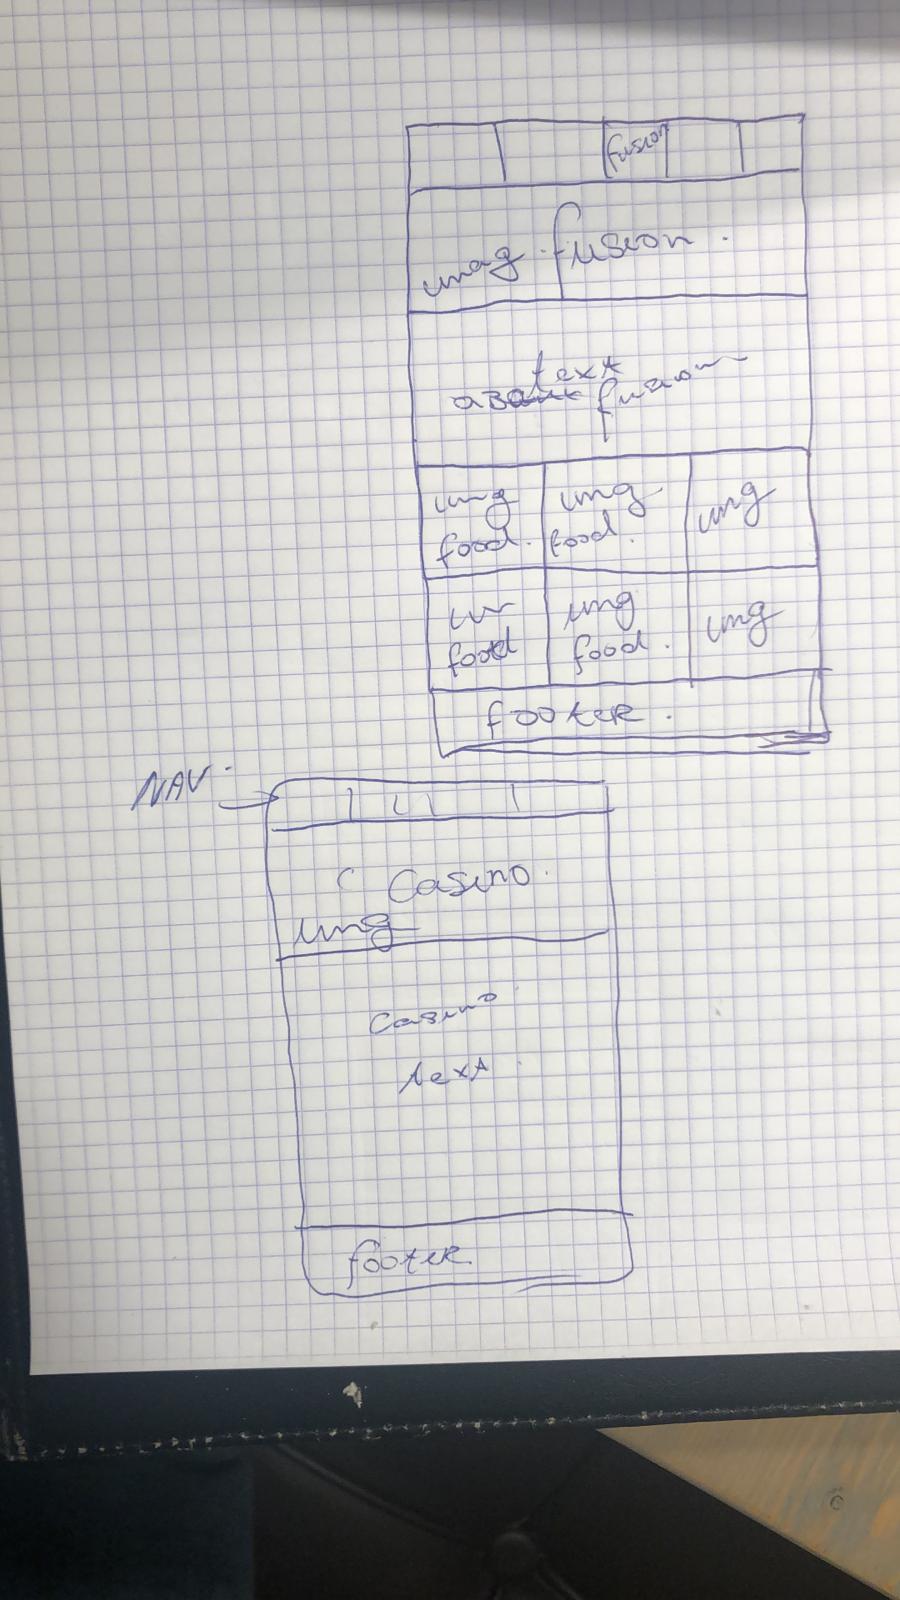 fusion
imag. fusion.
text
about fusion
img
food.
img
food.
img
food
img
food.
img
img
footer.
NAV.
C Casino.
img
casino
text
footer